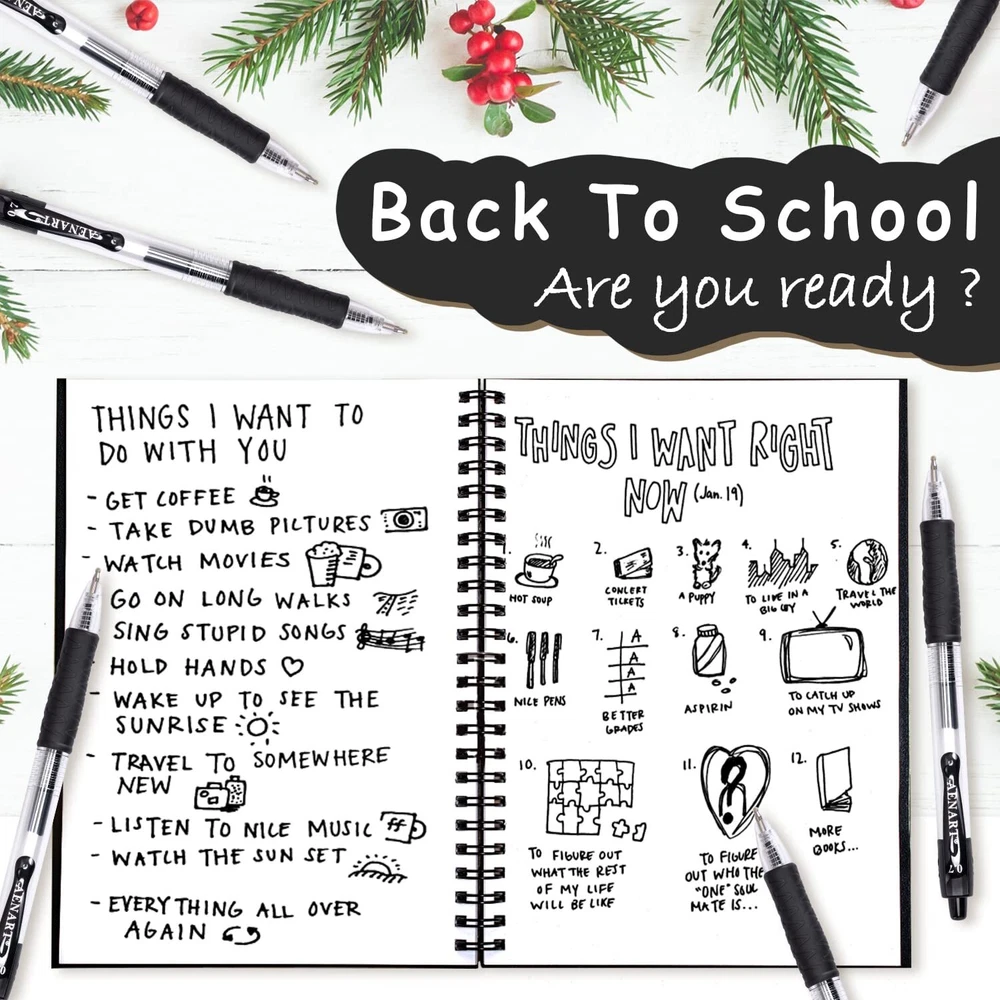 AENART
AENART
20
Back To School
Are you ready ?
THINGS I WANT TO
DO WITH YOU
- GET COFFEE
- TAKE DUMB PICTURES
- WATCH MOVIES
GO ON LONG WALKS
SING STUPID SONGS
HOLD HANDS
- WAKE UP TO SEE THE
SUNRISE
- TRAVEL TO SOMEWHERE
NEW
- LISTEN TO NICE MUSIC
- WATCH THE SUN SET
- EVERYTHING ALL OVER
AGAIN
THINGS I WANT RIGHT
NOW (Jan. 19)
1.
HOT SOUP
2.
CONCERT
TICKETS
3.
A PUPPY
4.
TO LIVE IN A
BIG CITY
5.
TRAVEL THE
WORLD
6.
NICE PENS
7.
A
A
A
A
BETTER
GRADES
8.
ASPIRIN
9.
TO CATCH UP
ON MY TV SHOWS
10.
TO FIGURE OUT
WHAT THE REST
OF MY LIFE
WILL BE LIKE
11.
TO FIGURE
OUT WHO THE
"ONE" SOUL
MATE IS...
12.
MORE
BOOKS...
AENART
AENART
20